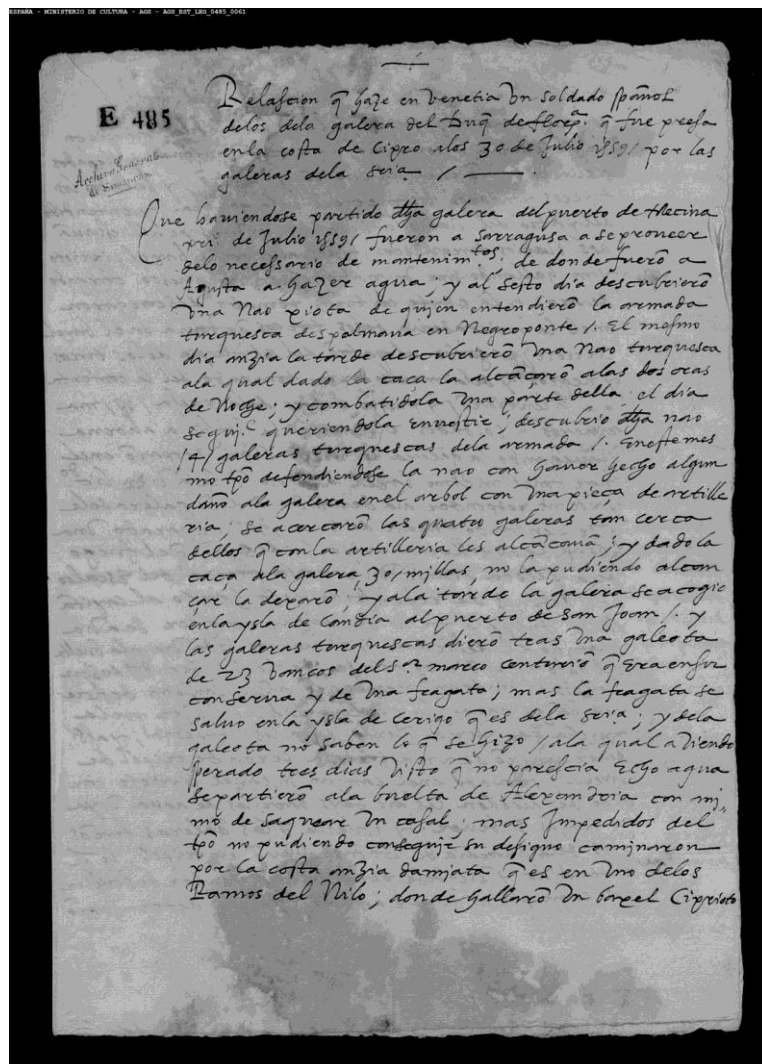 ESPAÑA - MINISTERIO DE CULTURA - AGS - AGS_EST_LEG_0485_0061
E 485
Archivo General
de Simancas
Relascion q̃ haze en Venetia Vn soldado spañol
delos dela galera del Duq̃ de florª. q̃ fue presa
enla costa de Cipro alos 30 de Julio 1559/ por las
galeras dela Sria /
Que haviendose partido dha galera del puerto de Mecina
pri.º de Julio 1559/ fueron a Sarragusa a se proveer
delo necessario de mantenimtos; de donde fuerõ a
Agusta a hazer agua; y al sesto dia descubrierõ
Vna Nao xiota de quien entendierõ la armada
turquesca despalmaua en Negroponte /. El mesmo
dia anzia la tarde descubrierõ Vna Nao turquesca
ala qual dado la caça la alcãçarõ alas dos oras
de Noche; y combatidola Vna parte della el dia
seguj.e queriendola envestir; descubrio dha nao
/4/ galeras turquescas dela armada /. Eneste mes
mo tpõ defendiendose la nao con haver hecho algun
daño ala galera enel arbol con Vna pieça de artille
ria; se acercarõ las quatro galeras tan cerca
dellos q̃ con la artilleria les alcãçauã; y dado la
caça ala galera 30/ millas, no la pudiendo alcan
çar la dexarõ; y ala tarde la galera se acogio
enla ysla de Candia al puerto de San Joan /. y
las galeras turquescas dierõ tras Vna galeota
de 23 Vancos del s.or marco centuriõ q̃ Era en su
conserua y de Vna fragata; mas la fragata se
saluo enla ysla de cerigo q̃ es dela Sria; y dela
galeota no saben lo q̃ se hizo / ala qual aViendo
sperado tres dias Visto q̃ no parescia Echo agua
se partierõ ala buelta de Alexandria con ani
mo de saquear Vn casal; mas Impedidos del
tpõ no pudiendo conseguir su designo caminaron
por la costa anzia damiata q̃ es en Vno delos
Ramos del Nilo; donde hallarõ Vn baxel Ciprioto